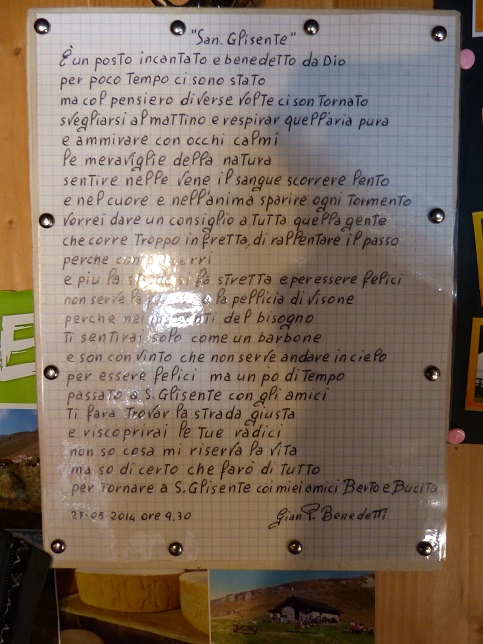 "San. Glisente"
È un posto incantato e benedetto da Dio
per poco tempo ci sono stato
ma col pensiero diverse volte ci son tornato
svegliarsi al mattino e respirar quell'aria pura
e ammirare con occhi calmi
le meraviglie della natura
sentire nelle vene il sangue scorrere lento
e nel cuore e nell'anima sparire ogni tormento
vorrei dare un consiglio a tutta quella gente
che corre troppo in fretta, di rallentare il passo
perche corri
e piu la si fa stretta e per essere felici
non serve la o la pelliccia di visone
perche nei momenti del bisogno
ti sentirai solo come un barbone
e son convinto che non serve andare in cielo
per essere felici ma un po di tempo
passato a S. Glisente con gli amici
Ti fara trovar la strada giusta
e riscoprirai le tue radici
non so cosa mi riserva la vita
ma so di certo che farò di tutto
per tornare a S. Glisente coi miei amici Berto e Bucita
27-05-2014 ore 9,30 Gian. P. Benedetti
E